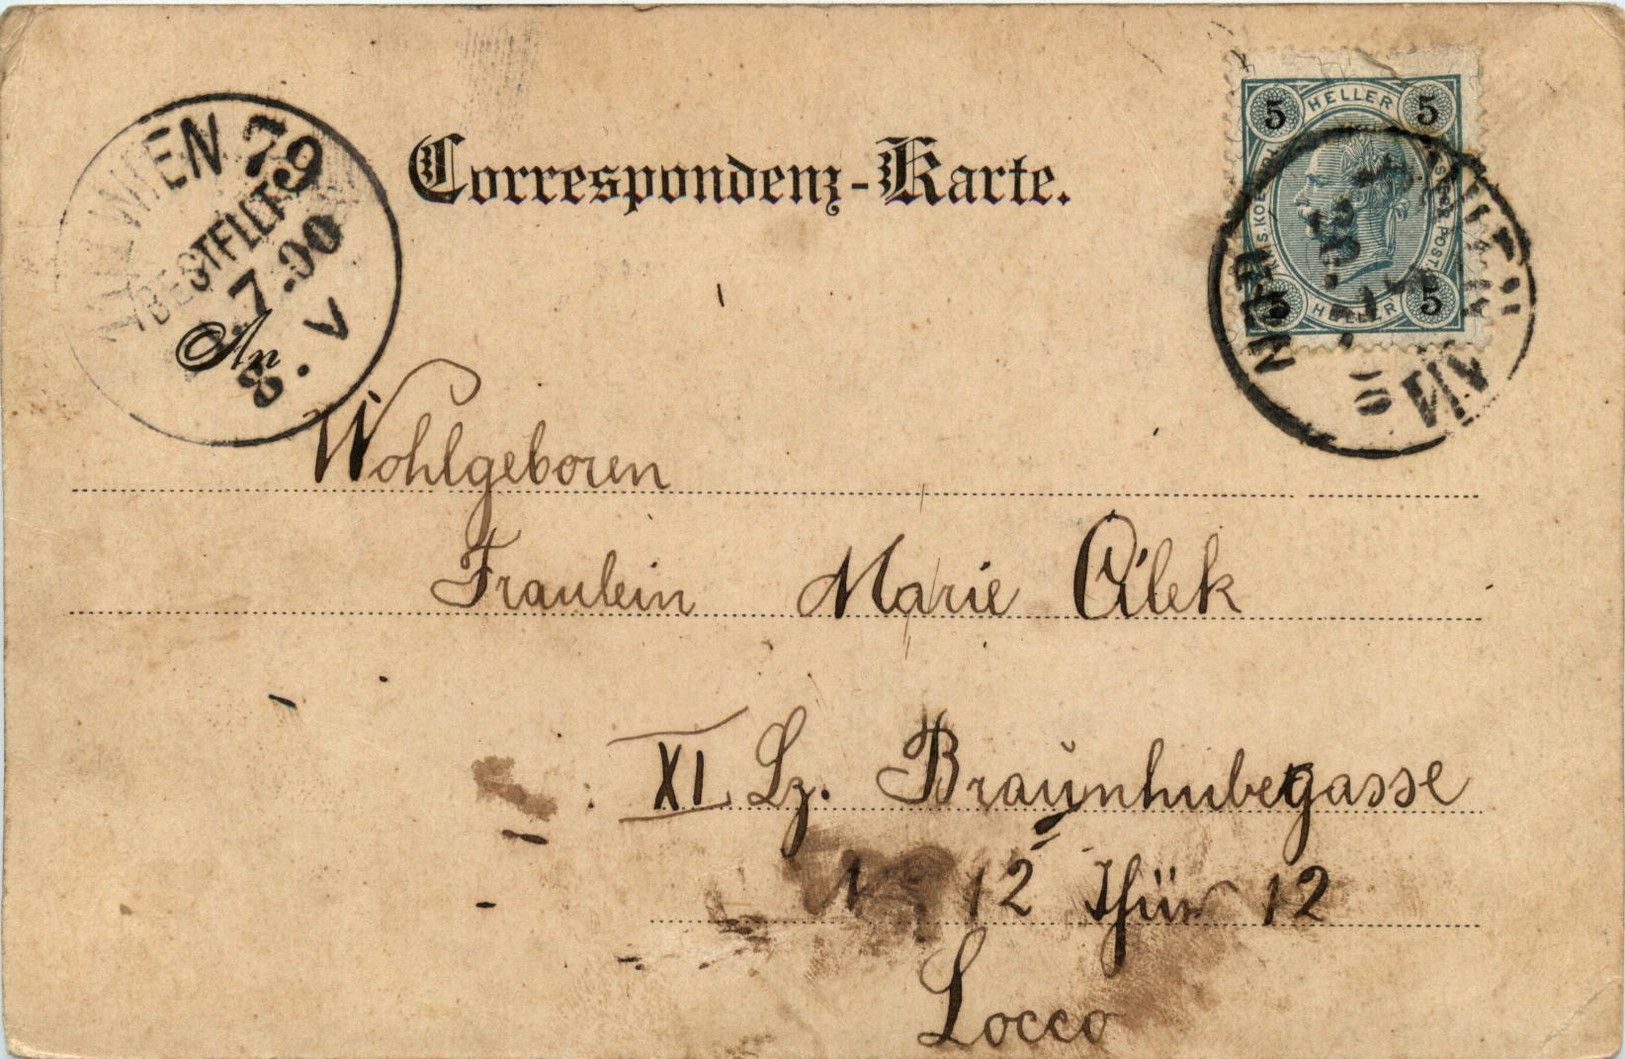 WIEN 79
BESTELLT
.7.00
8. V
Correspondenz-Karte.
5 HELLER 5
5 HELLER 5
An
Wohlgeboren
Fraulein Marie Cílek
XI Lz. Braunhubergasse
12 Thür 12
Locco